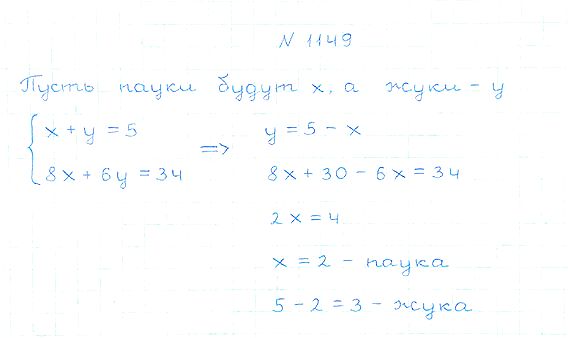 N 1149
Пусть пауки будут x, а жуки - y
x + y = 5 => y = 5 - x
8x + 6y = 34 8x + 30 - 6x = 34
2x = 4
x = 2 - паука
5 - 2 = 3 - жука